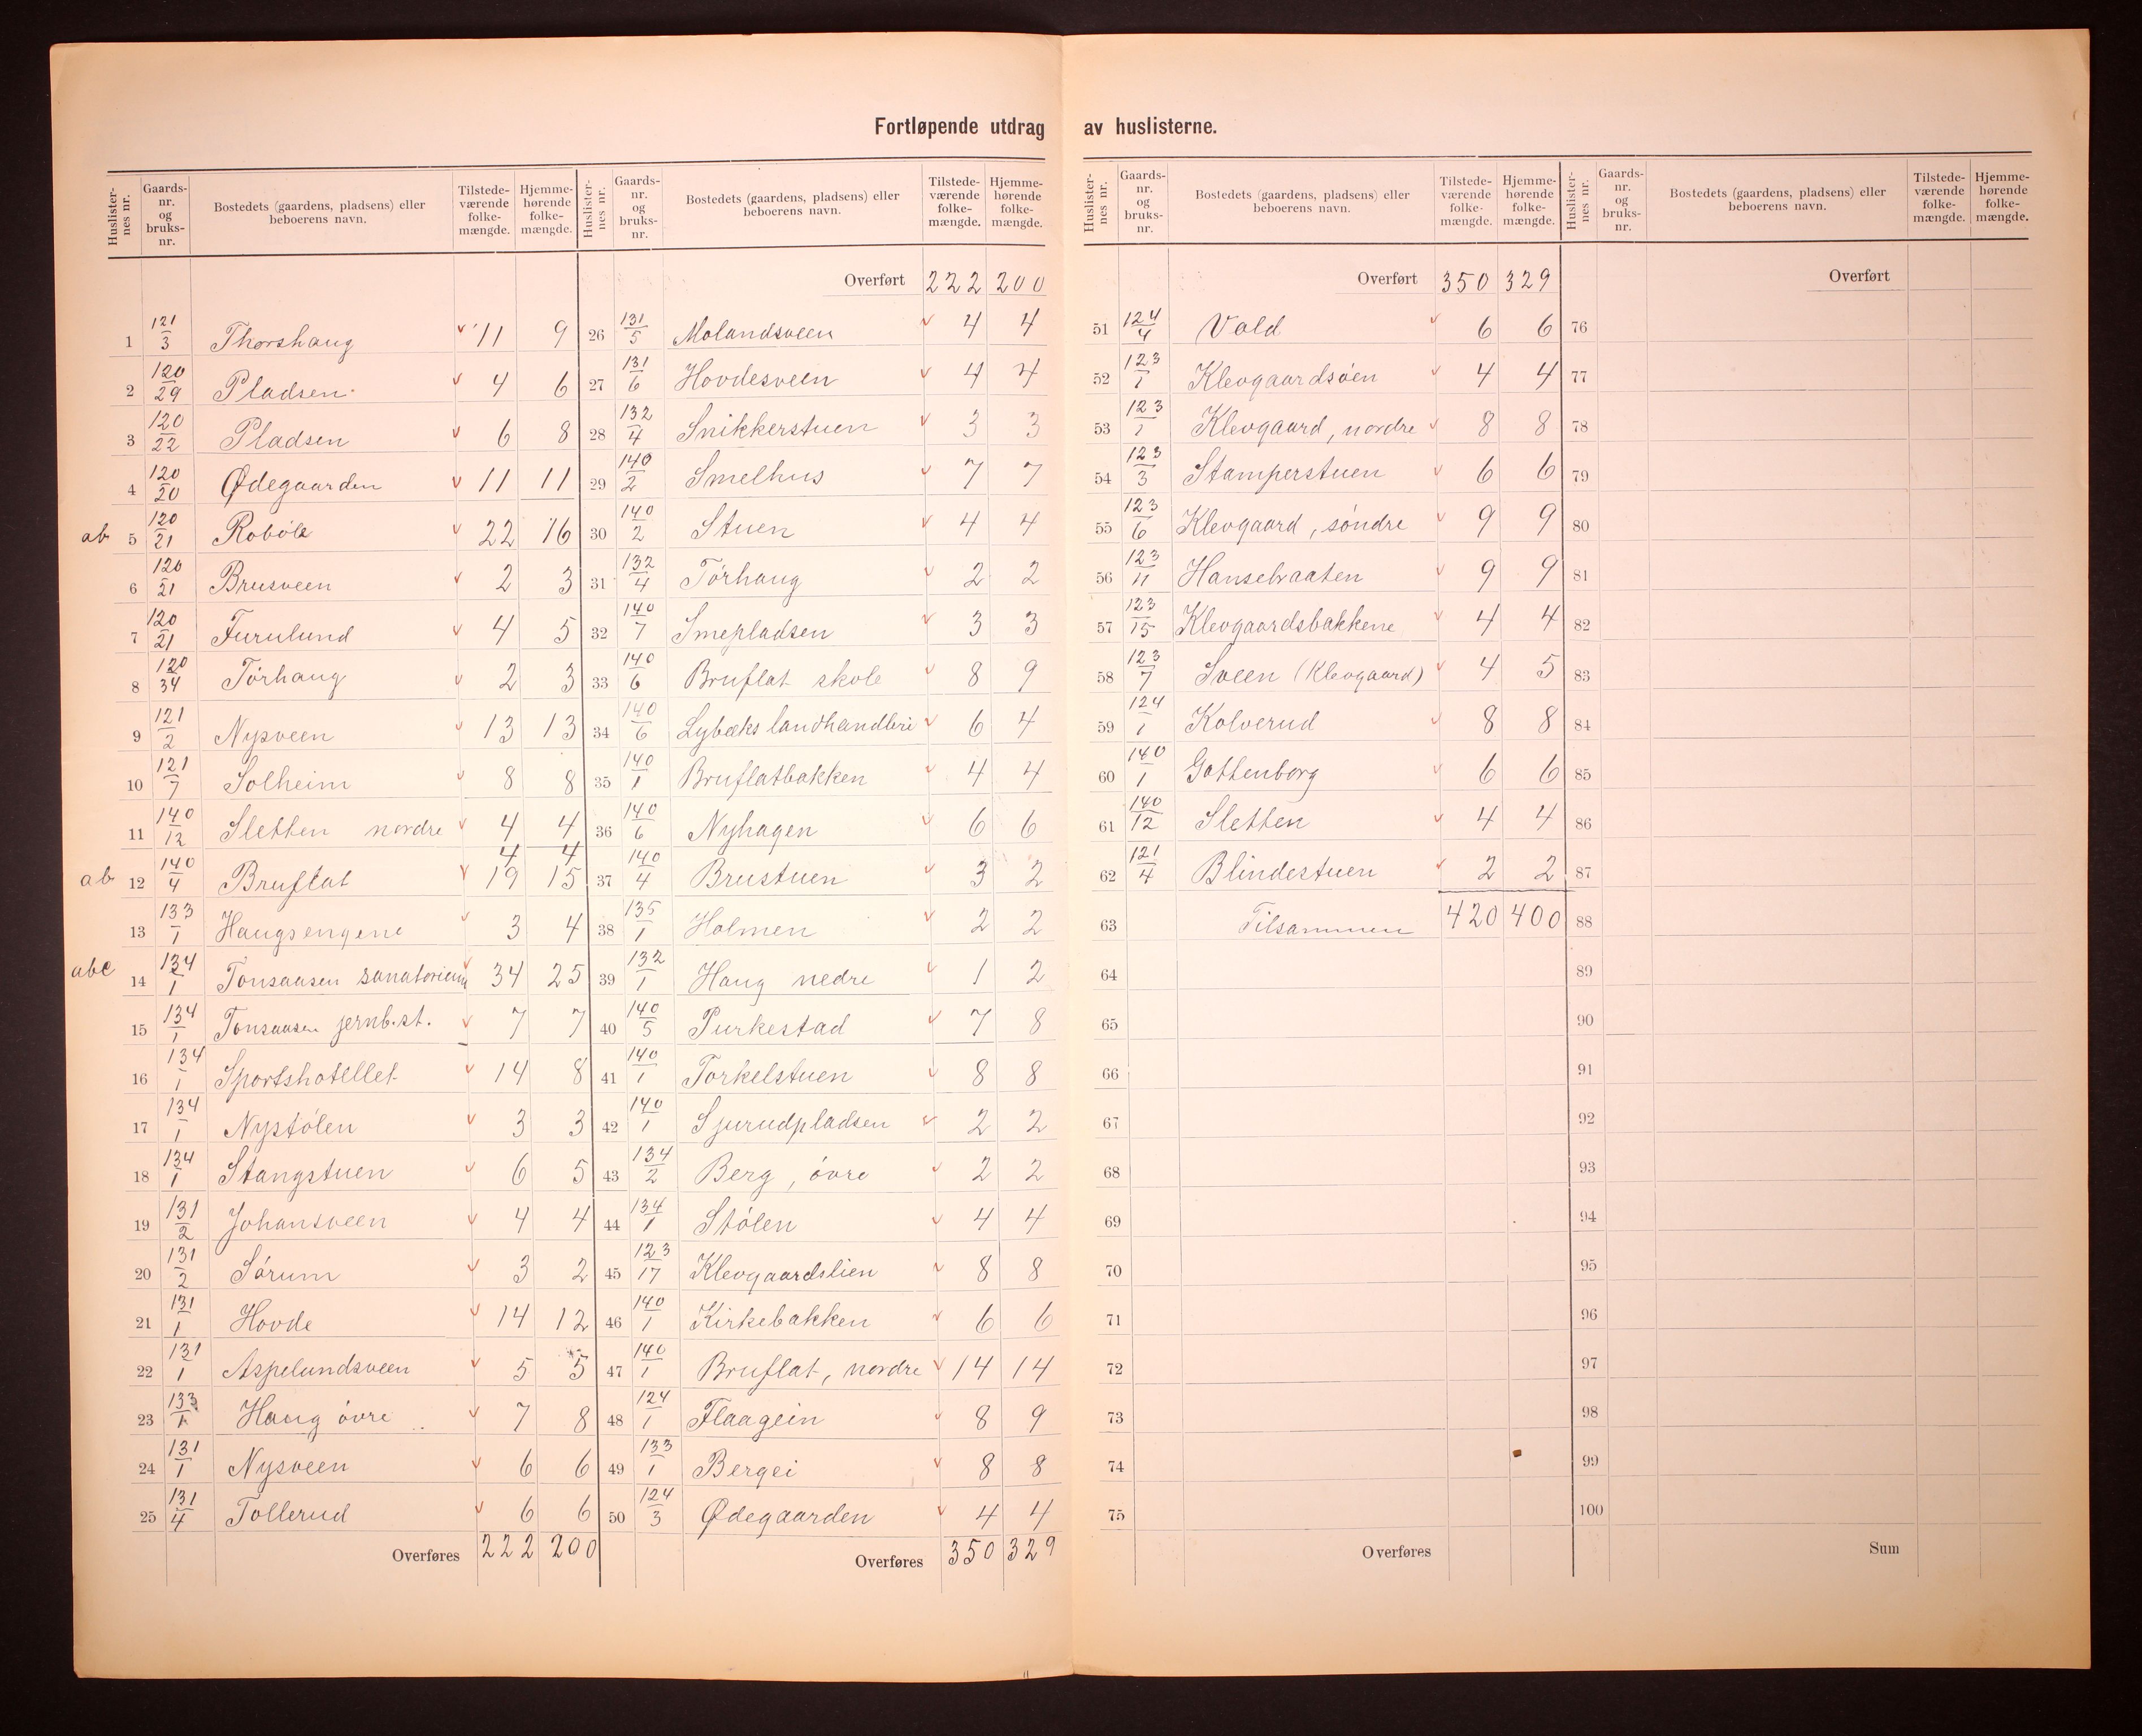 Fortløpende utdrag av huslisterne.
Huslisternes nr. | Gaards-nr. og bruks-nr. | Bostedets (gaardens, pladsens) eller beboerens navn. | Tilstede-værende folke-mængde. | Hjemme-hørende folke-mængde.
1 121/3 Thorshaug 11 9
2 120/29 Pladsen 4 6
3 120/22 Pladsen 6 8
4 120/20 Ødegaarden 11 11
ab 5 120/21 Robøle 22 16
6 120/21 Brusveen 2 3
7 120/21 Furulund 4 5
8 120/34 Törhaug 2 3
9 121/2 Nysveen 13 13
10 121/7 Solheim 8 8
11 140/12 Sletten nordre 4 4
4 4
ab 12 140/4 Bruflat 19 15
13 133/1 Haugsengene 3 4
abc 14 134/1 Tonsaasen sanatorium 34 25
15 134/1 Tonsaasen jernb.st. 7 7
16 134/1 Sportshotellet 14 8
17 134/1 Nystölen 3 3
18 134/1 Stangstuen 6 5
19 131/2 Johansveen 4 4
20 131/2 Sörum 3 2
21 131/1 Hovde 14 12
22 131/1 Aspelundsveen 5 5
23 133/1 Haug övre 7 8
24 131/1 Nysveen 6 6
25 131/4 Tollerud 6 6
Overføres 222 200
Huslisternes nr. | Gaards-nr. og bruks-nr. | Bostedets (gaardens, pladsens) eller beboerens navn. | Tilstede-værende folke-mængde. | Hjemme-hørende folke-mængde.
Overført 222 200
26 131/5 Molandsveen 4 4
27 131/6 Hovdesveen 4 4
28 132/4 Snikkerstuen 3 3
29 140/2 Smelhus 7 7
30 140/2 Stuen 4 4
31 132/4 Törhaug 2 2
32 140/7 Smepladsen 3 3
33 140/6 Bruflat skole 8 9
34 140/6 Lybeks landhandleri 6 4
35 140/1 Bruflatbakken 4 4
36 140/6 Nyhagen 6 6
37 140/4 Brustuen 3 2
38 135/1 Holmen 2 2
39 132/1 Haug nedre 1 2
40 140/5 Purkestad 7 8
41 140/1 Torkelstuen 8 8
42 140/1 Sjurudpladsen 2 2
43 134/2 Berg, övre 2 2
44 134/1 Stölen 4 4
45 123/17 Klevgaardslien 8 8
46 140/1 Kirkebakken 6 6
47 140/1 Bruflat, nordre 14 14
48 124/1 Flaagein 8 9
49 133/1 Bergei 8 8
50 124/3 Ødegaarden 4 4
Overføres 350 329
Huslisternes nr. | Gaards-nr. og bruks-nr. | Bostedets (gaardens, pladsens) eller beboerens navn. | Tilstede-værende folke-mængde. | Hjemme-hørende folke-mængde.
Overført 350 329
51 124/4 Vold 6 6
52 123/1 Klevgaardsöen 4 4
53 123/1 Klevgaard, nordre 8 8
54 123/3 Stamperstuen 6 6
55 123/6 Klevgaard, söndre 9 9
56 123/11 Hansebraaten 9 9
57 123/15 Klevgaardsbakkene 4 4
58 123/7 Sveen (Klevgaard) 4 5
59 124/1 Kolverud 8 8
60 140/1 Gottenborg 6 6
61 140/12 Sletten 4 4
62 121/4 Blindestuen 2 2
63 Tilsammen 420 400
64
65
66
67
68
69
70
71
72
73
74
75
Overføres
Huslisternes nr. | Gaards-nr. og bruks-nr. | Bostedets (gaardens, pladsens) eller beboerens navn. | Tilstede-værende folke-mængde. | Hjemme-hørende folke-mængde.
Overført
76
77
78
79
80
81
82
83
84
85
86
87
88
89
90
91
92
93
94
95
96
97
98
99
100
Sum